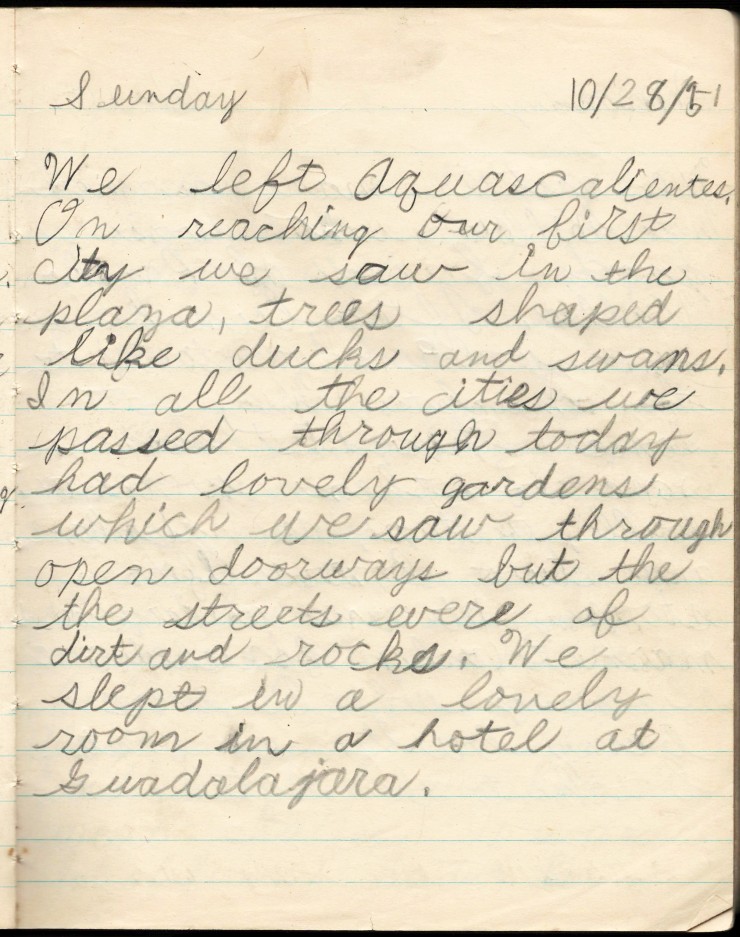 Sunday 10/28/51
We left Aquascalientes.
On reaching our first
city we saw in the
plaza, trees shaped
like ducks and swans.
In all the cities we
passed through today
had lovely gardens
which we saw through
open doorways but the
the streets were of
dirt and rocks. We
slept in a lovely
room in a hotel at
Guadalajara.